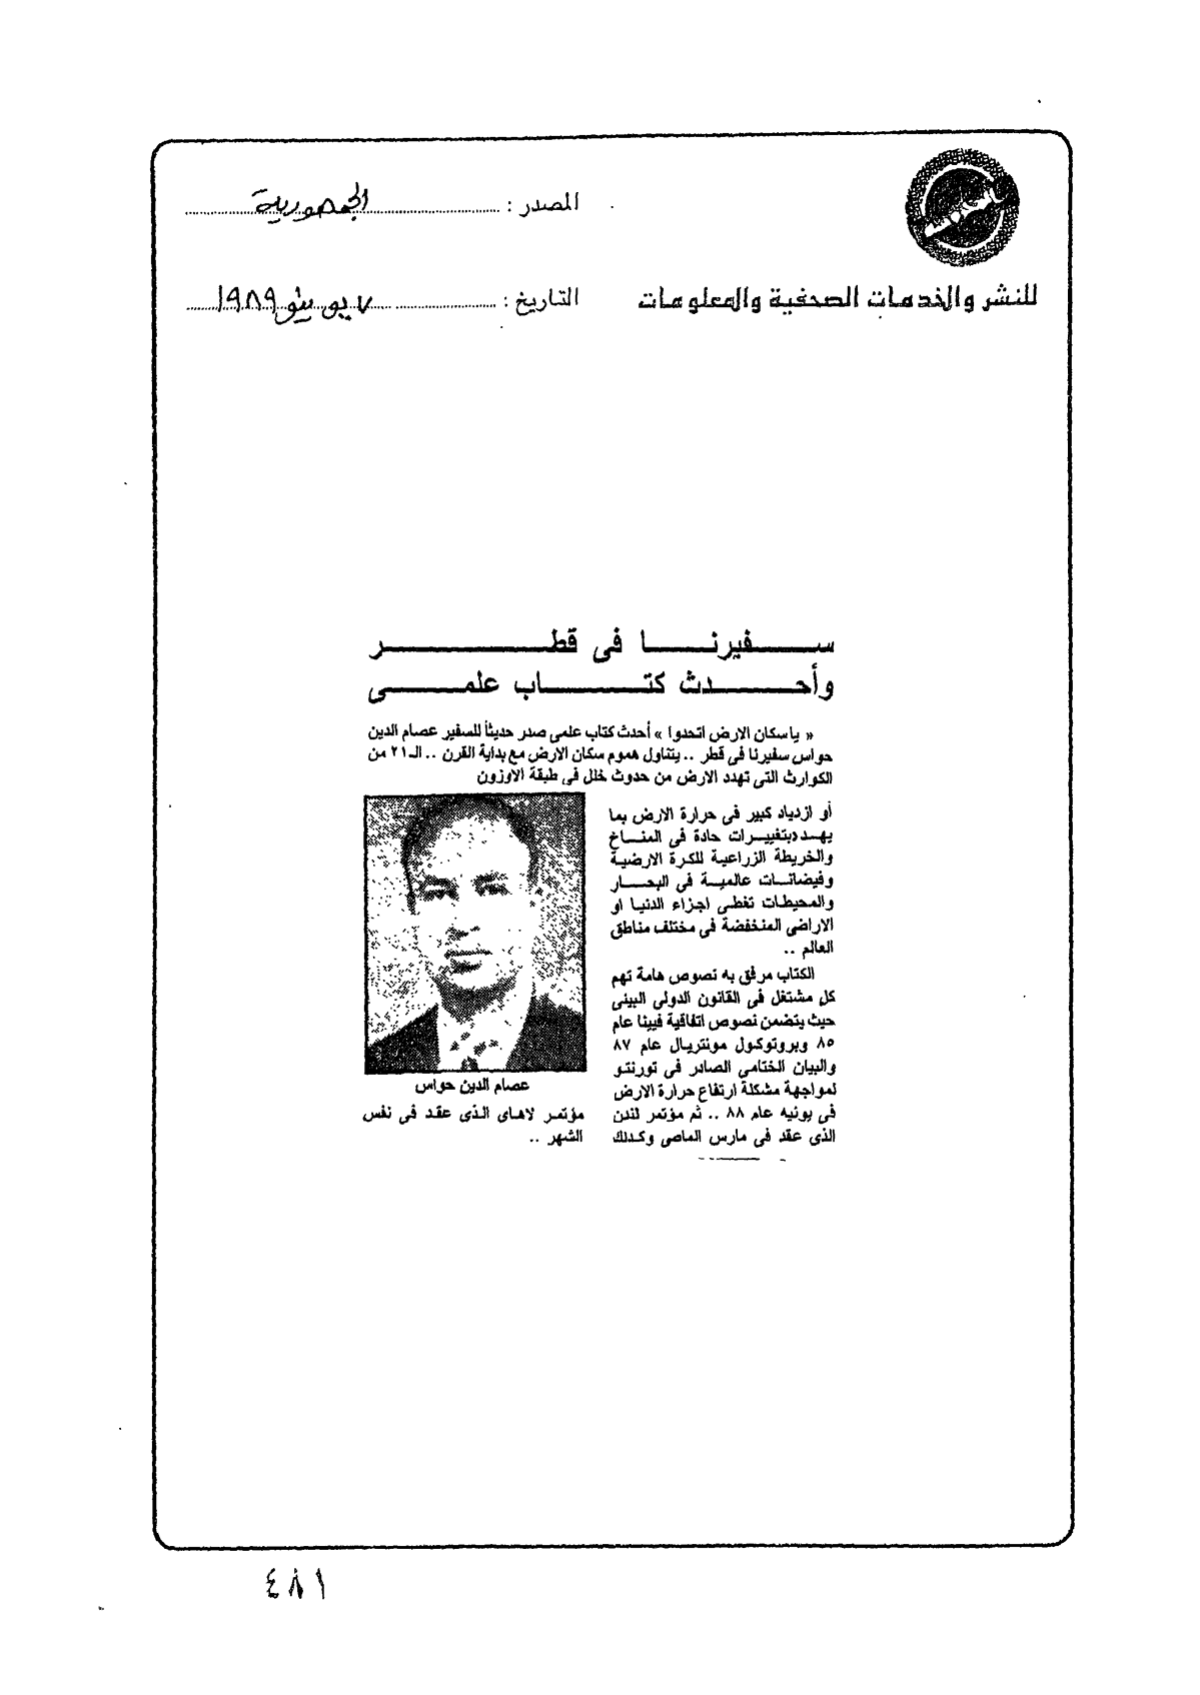 المصدر : الجمهورية
للنشر والخدمات الصحفية والمعلومات
التاريخ : ٧ يونيو ١٩٨٩
سفيرنا فى قطر
وأحدث كتاب علمى
« ياسكان الارض اتحدوا » أحدث كتاب علمى صدر حديثاً للسفير عصام الدين
حواس سفيرنا فى قطر .. يتناول هموم سكان الارض مع بداية القرن .. الـ ٢١ من
الكوارث التى تهدد الارض من حدوث خلل فى طبقة الاوزون
أو ازدياد كبير فى حرارة الارض بما
يهدد بتغييرات حادة فى المناخ
والخريطة الزراعية للكرة الارضية
وفيضانات عالمية فى البحار
والمحيطات تغطى اجزاء الدنيا او
الاراضى المنخفضة فى مختلف مناطق
العالم ..
الكتاب مرفق به نصوص هامة تهم
كل مشتغل فى القانون الدولى البيئى
حيث يتضمن نصوص اتفاقية فيينا عام
٨٥ وبروتوكول مونتريال عام ٨٧
والبيان الختامى الصادر فى تورنتو
لمواجهة مشكلة ارتفاع حرارة الارض
فى يونيه عام ٨٨ .. ثم مؤتمر لندن
الذى عقد فى مارس الماضى وكذلك
عصام الدين حواس
مؤتمر لاهاى الذى عقد فى نفس
الشهر ..
٤٨١